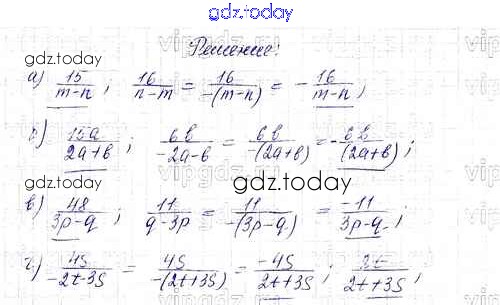 gdz.today
Решение:
gdz.today
а) 15/(m-n) ; 16/(n-m) = 16/(-(m-n)) = - 16/(m-n) ;
б) 15a/(2a+b) ; 6b/(-2a-b) = 6b/(-(2a+b)) = - 6b/(2a+b) ;
gdz.today
в) 48/(3p-q) ; 11/(q-3p) = 11/(-(3p-q)) = -11/(3p-q) ;
г) 4s/(-2t-3s) = 4s/(-(2t+3s)) = -4s/(2t+3s) ; 2t/(2t+3s) ;